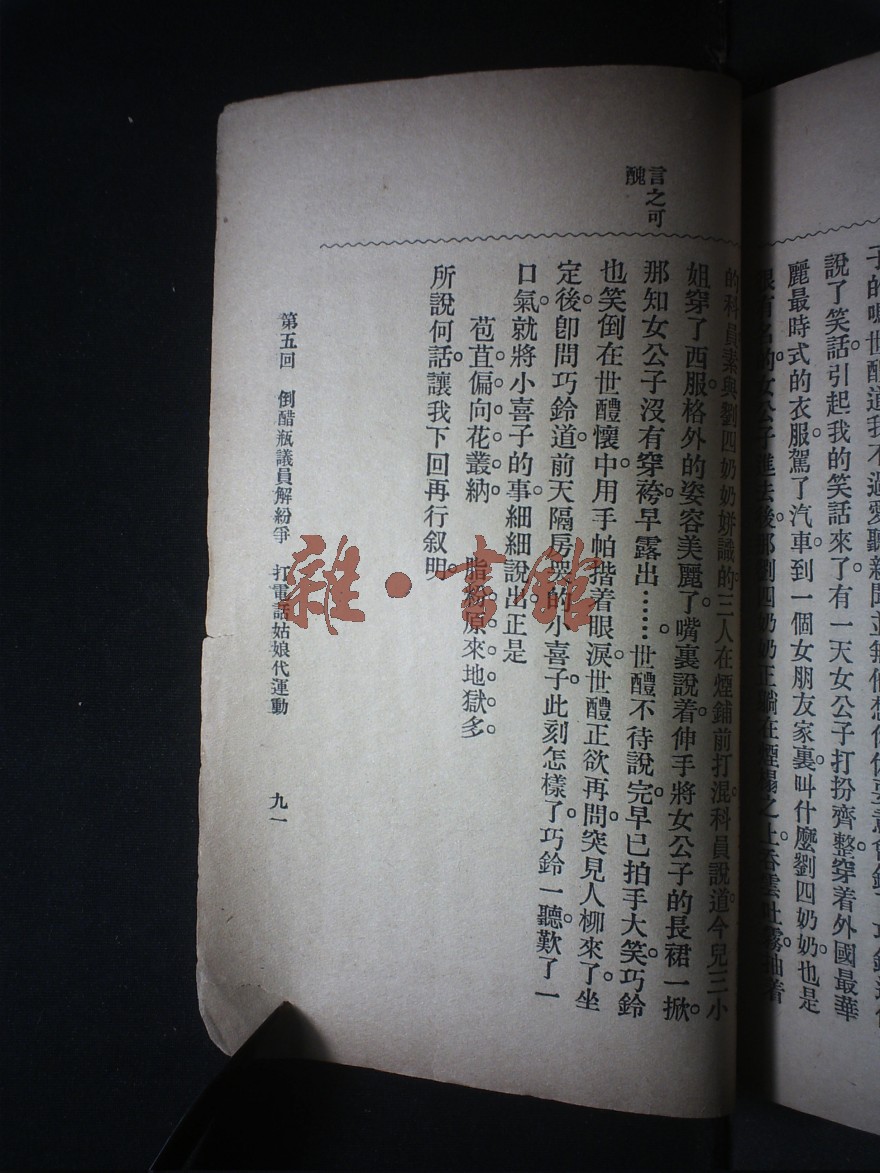 說了笑話引起我的笑話來了有一天女公子打扮齊整穿着外國最華
麗最時式的衣服駕了汽車到一個女朋友家裏叫什麼劉四奶奶也是
言之可
醜
的科員素與劉四奶奶姘識的三人在煙鋪前打混科員說道今兒三小
姐穿了西服格外的姿容美麗了嘴裏說着伸手將女公子的長裙一掀
那知女公子沒有穿袴早露出……世醴不待說完早已拍手大笑巧鈴
也笑倒在世醴懷中用手帕揩着眼淚世醴正欲再問突見人柳來了坐
定後卽問巧鈴道前天隔房哭的小喜子此刻怎樣了巧鈴一聽歎了一
口氣就將小喜子的事細細說出正是
苞苴偏向花叢納　脂粉原來地獄多
所說何話讓我下回再行叙明
第五回　倒醋瓶議員解紛爭　打電話姑娘代運動　九一
雜·書館